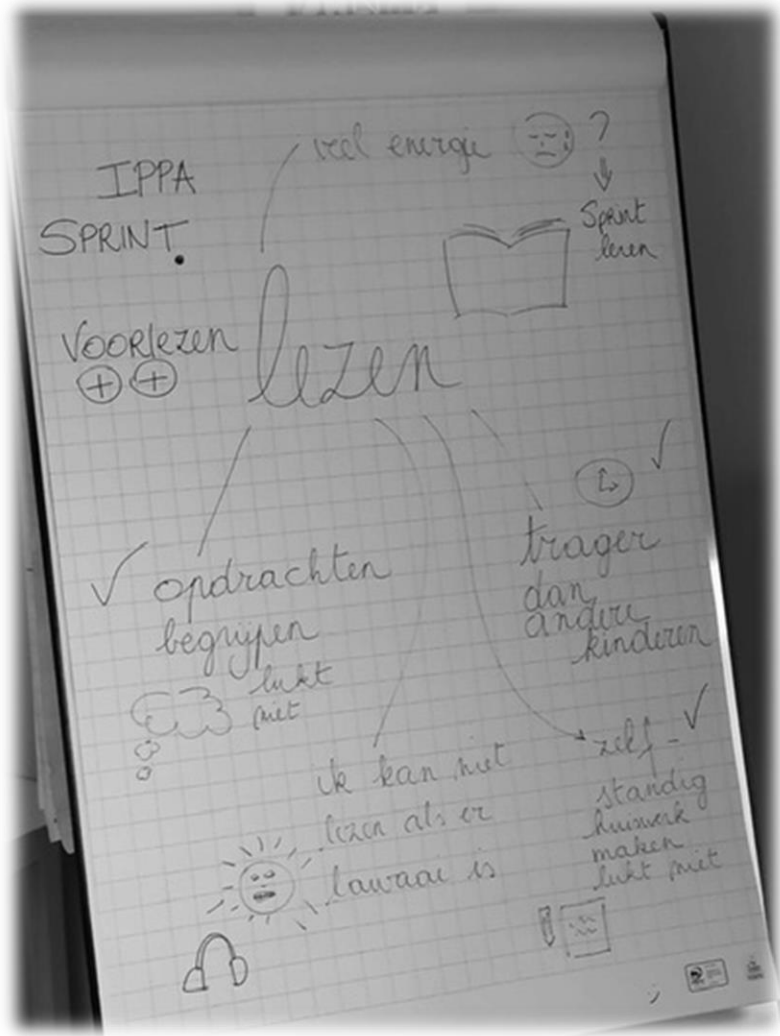 veel energie ?
IPPA
SPRINT.
Sprint
leren
VOORlezen
lezen
opdrachten
begrijpen
lukt
niet
trager
dan
andere
kinderen
ik kan niet
lezen als er
lawaai is
zelf-
standig
huiswerk
maken
lukt niet